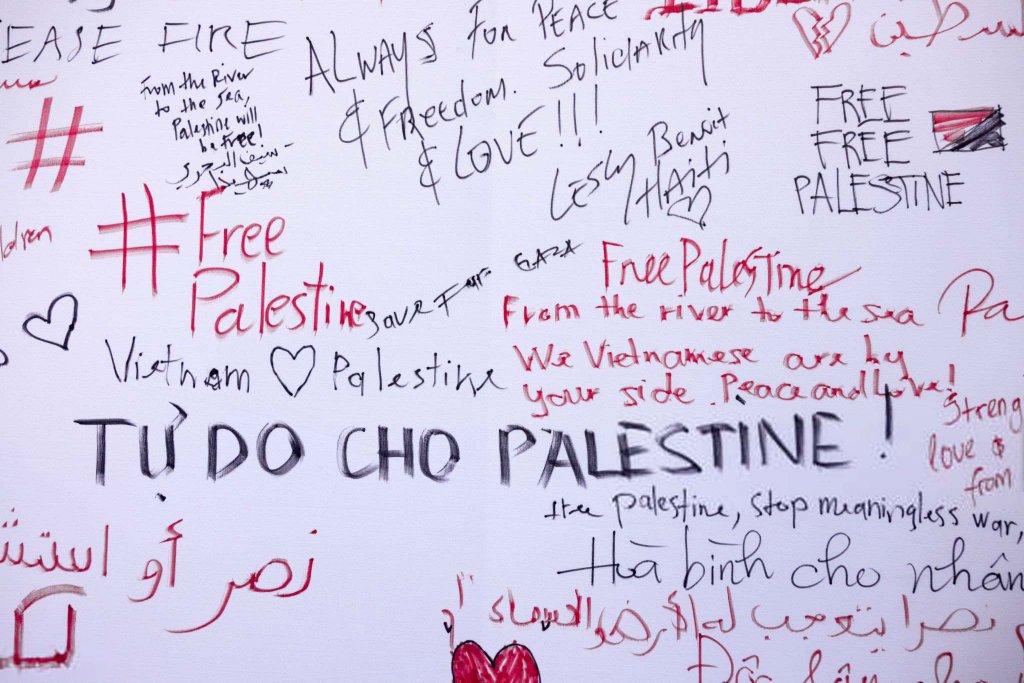 EASE FIRE
From the River
to the Sea,
Palestine will
be free!
ALWAYS FOR PEACE
& Freedom. Solidarity
& LOVE!!!
Lesly Benoit
HAiti
FREE
FREE
PALESTINE
#
# Free
Palestine
ldren
Save
GAZA
Free Palestine
From the river to the sea
We Vietnamese are by
your side. Peace and Love!
Pa
Vietnam ♡ Palestine
Streng
love &
from
TỰ DO CHO PALESTINE!
free palestine, stop meaningless war,
Hoà bình cho nhân
نصر أو استش
نصرا يتعجب له